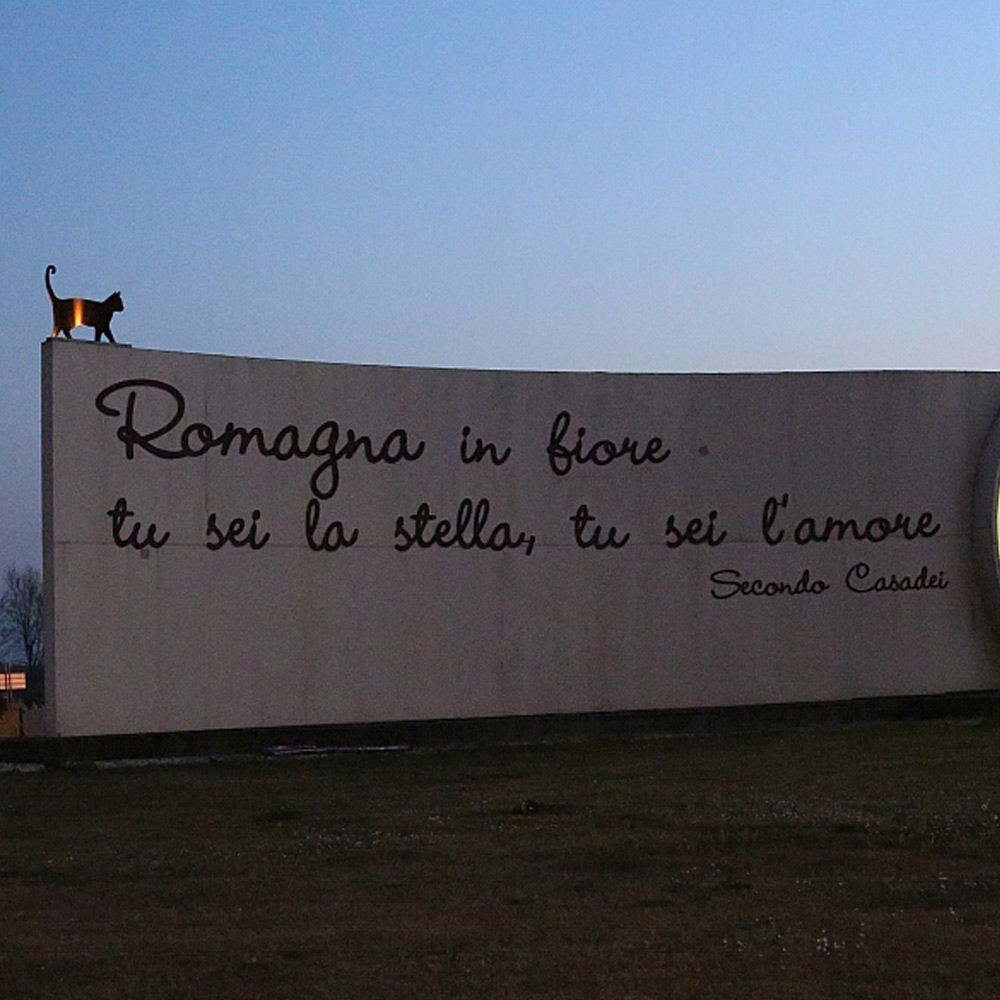 Romagna in fiore
tu sei la stella, tu sei l'amore
Secondo Casadei